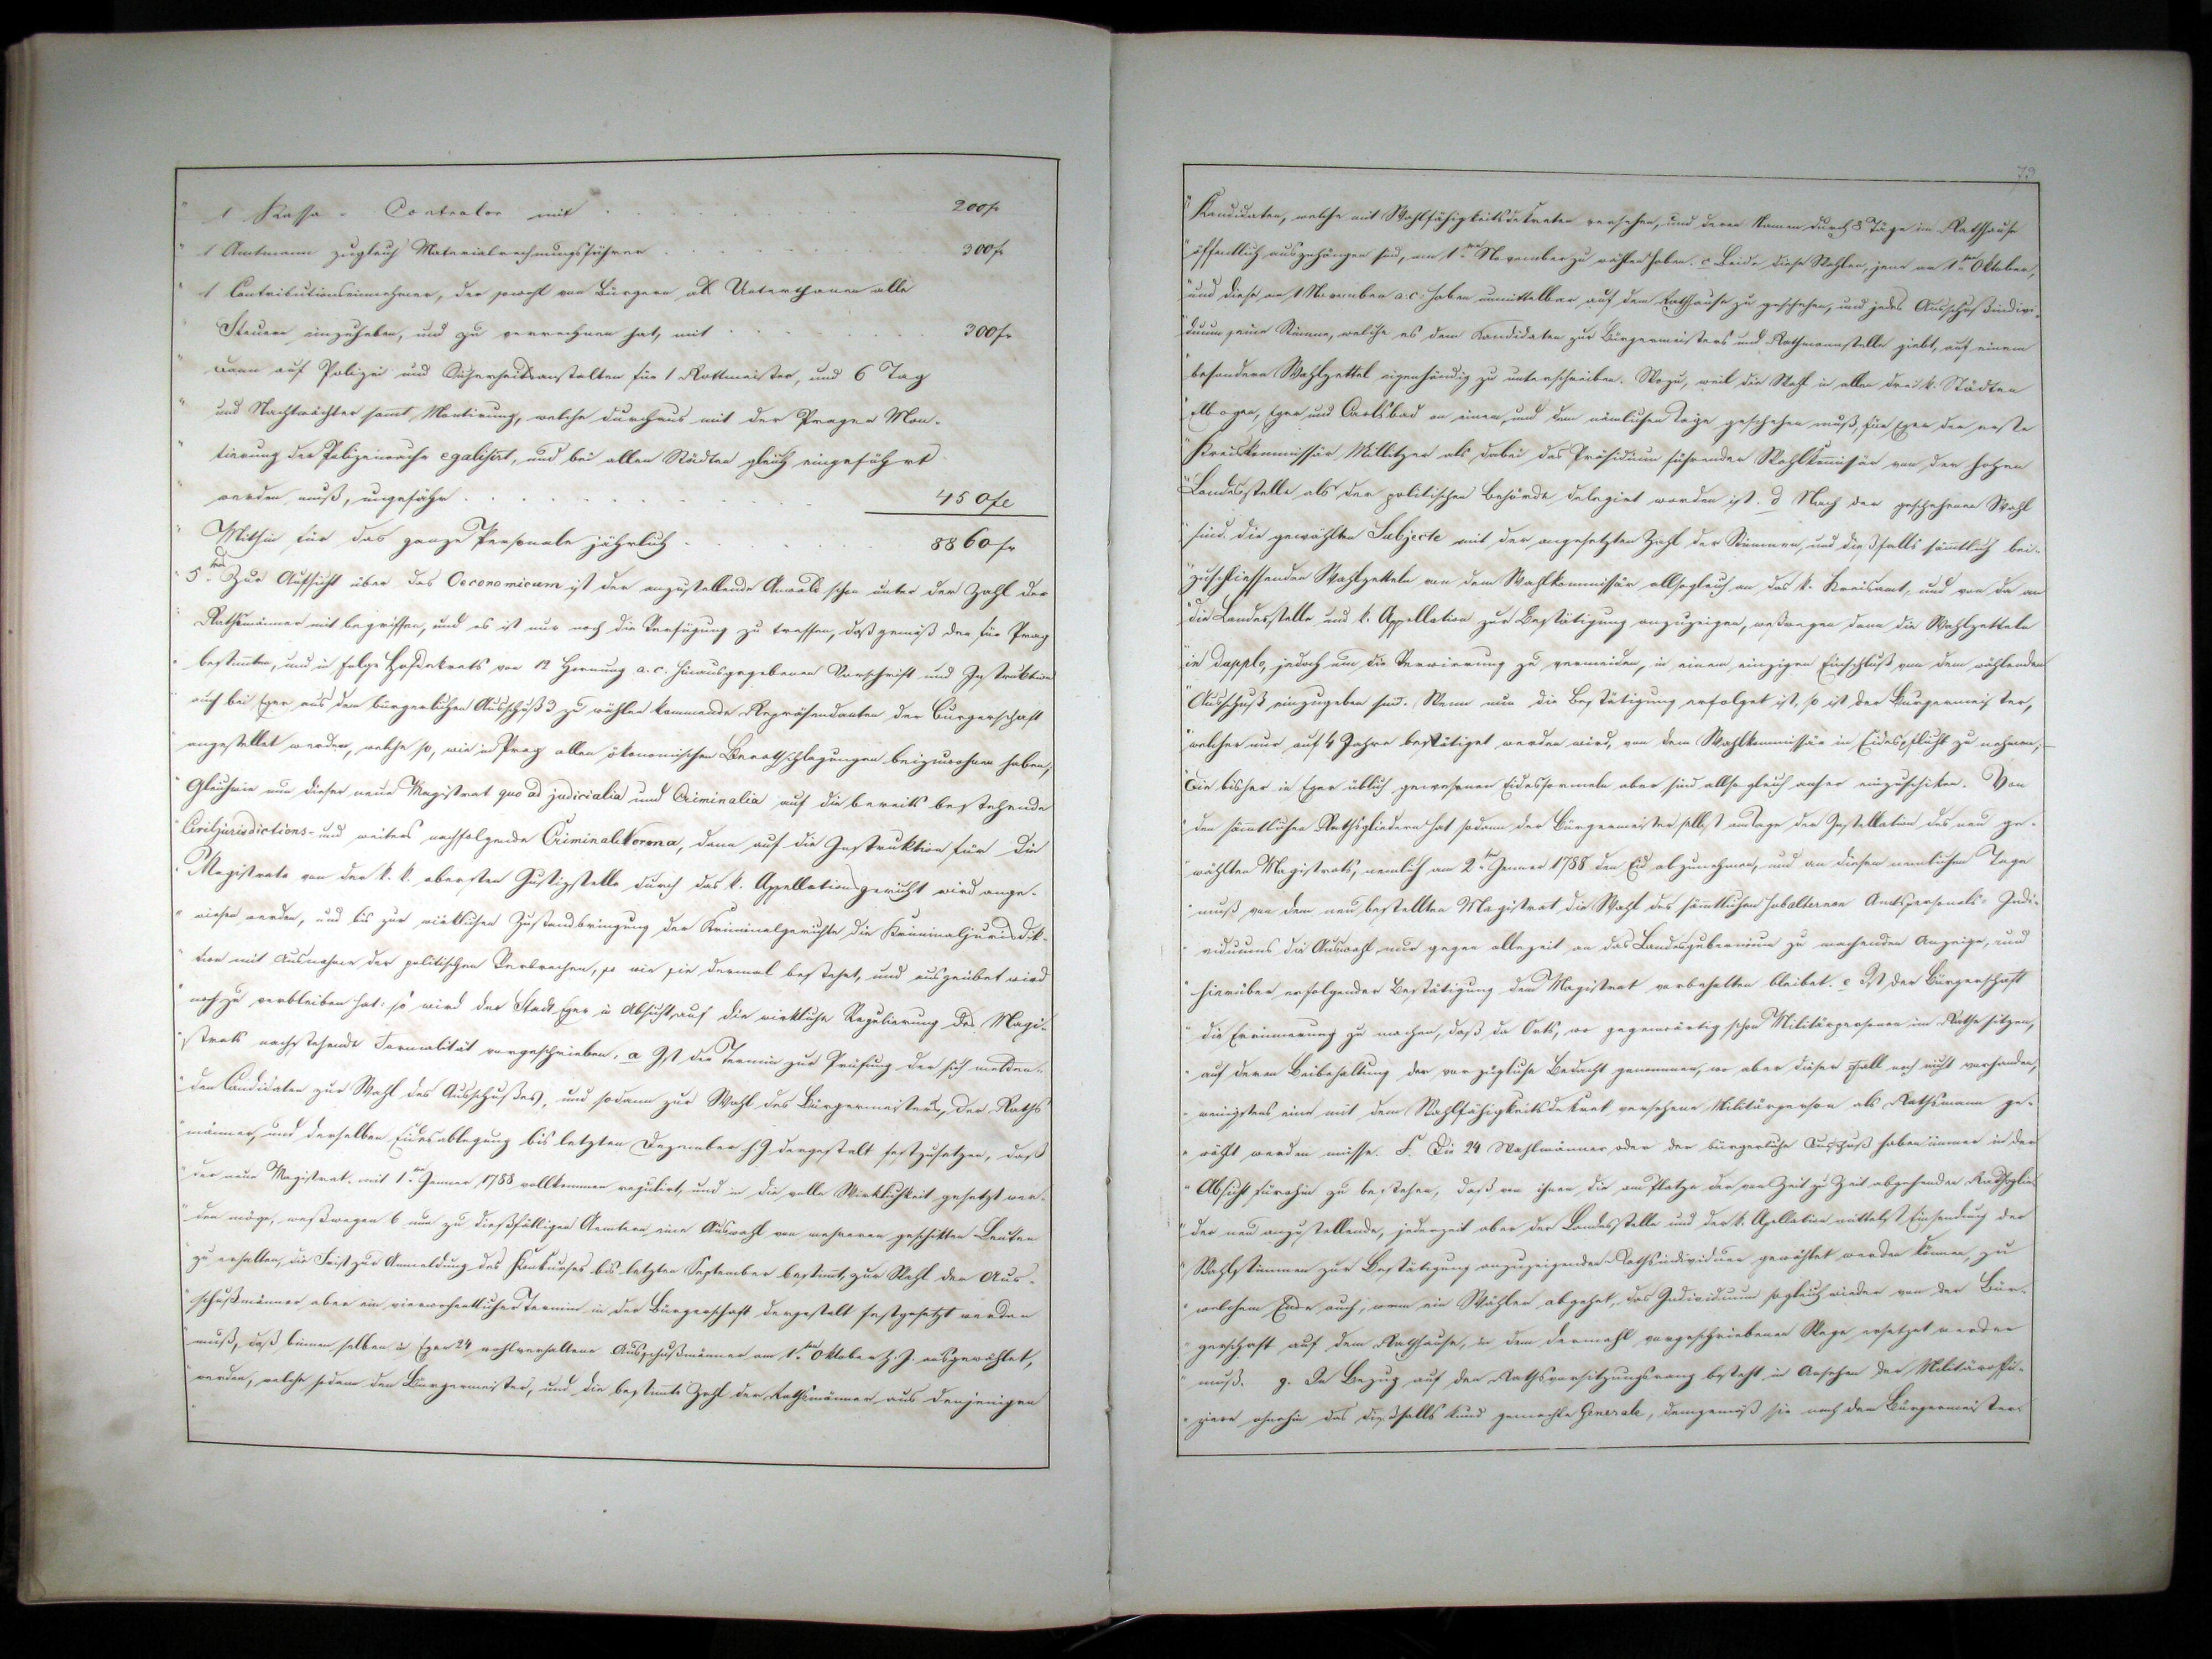 " 1 Kassa - Controlor mit . . . . . . . 200 fr
" 1 Amtmann zugleich Materialrechnungsführer . . . . . . 300 fr
" 1 Contributionseinnehmer, der sowohl von Bürgern als Unterthanen alle
" Steuern einzuheben, und zu verrechnen hat, mit . . . . . 300 fr
" dann auf Polizei und Sicherheitsanstalten für 1 Rottmeister, und 6 Tag
" und Nachtwächter samt Montirung, welche durchaus mit der Prager Mon-
" tierung der Polizeiwache egalisirt, und bei allen Städten gleich eingeführt
" werden muß, ungefähr . . . . . . . . 450 fl
" Mithin für das ganze Personale jährlich . . . . . . 8860 fr
" 5.ten Zur Aufsicht über das Oeconomicum ist der anzustellende Anwald schon unter der Zahl der
" Rathsmänner mit begriffen, und es ist nur noch die Verfügung zu treffen, daß gemäß der für Prag
" bestimten, und in Folge Hofdekrets von 12 Hornung a. c. hinausgegebenen Vorschrift und Instruktion
" auch bei Eger aus dem bürgerlichen Ausschuß 3 zu wählen kommende Repräsendanten der Bürgerschaft
" angestellet werden, welche so, wie in Prag allen ökonomischen Berathschlagungen beizuwohnen haben;
" Gleichwie nun dieser neue Magistrat quo ad judicialia und Criminalia auf die bereits bestehende
" Civiljurisdictions- und weiters nachfolgende Criminal Norma, dann auf die Instruktion für die
" Magistrate von der k. k. obersten Justizstelle durch das k. Appellationsgericht wird ange-
" wiesen werden, und bis zur wirklichen Zustandbringung der Kriminalgerichte die Kriminaljurisdik-
" tion mit Ausnahme der politischen Verbrechen, so wie sie dermal bestehet, und ausgeübet wird
" noch zu verbleiben hat: so wird der Stadt Eger in Absicht auf die wirkliche Regulierung des Magi-
" strats nachstehende Formalität vorgeschrieben. a Ist der Termin zur Prüfung der sich melden-
" den Candidaten zur Wahl des Ausschußes, und sodann zur Wahl des Bürgermeisters, der Raths-
" männer, und derselben Eidesablegung bis letzten Dezember h. J. dergestalt festzusetzen, daß
" der neue Magistrat mit 1.ten Jenner 1788 vollkommen regulirt, und in die volle Wirklichkeit gesetzt wer-
" den möge, weßwegen b um zu dießfälligen Aemtern eine Auswahl von mehreren geschikten Leuten
" zu erhalten, die Frist zur Anmeldung des Konkurses bis letzten September bestimt, zur Wahl der Aus-
" schußmänner aber ein vierwochentlicher Termin in der Bürgerschaft dergestalt festgesetzt werden
" muß, daß binnen selben in Eger 24 wohlverhaltene Ausschußmänner am 1.ten Oktober h. J. ausgewählet,
" werden, welche sodann den Bürgermeister, und die bestimte Zahl der Rathsmänner aus denjenigen
79
" Kandidaten, welche mit Wahlfähigkeitsdekreten versehen, und deren Namen durch 8 Täge im Rathhause
" öffentlich auszuhängen sind, am 1.ten November zu wählen haben. c Beide diese Wahlen, jene am 1.ten Oktober,
" und diese am 1 November a. c. haben unmittelbar auf dem Rathhause zu geschehen, und jedes Ausschußindivi-
" duum seine Stimme, welche es dem Kandidaten zur Bürgermeisters und Rathmannstelle giebt, auf einem
" besondern Wahlzettel eigenhändig zu unterschreiben. Wozu, weil die Wahl in allen drei k. Städten
" Elbogen, Eger und Carlsbad an einem, und dem nämlichen Tage geschehen muß, für Eger der erste
" Kreiskommissär Millitzer als dabei das Präsidium führender Wahlkommissär von der hohen
" Landesstelle als der politischen Behörde delegirt worden ist. d Nach der geschehenen Wahl
" sind die gewählten Subjecte mit der angesetzten Zahl der Stimmen, und dießfalls sämtlich bei-
" zuschliessenden Wahlzetteln von dem Wahlkommissär allsogleich an das k. Kreisamt, und von da an
" die Landesstelle und k. Appellation zur Bestätigung anzuzeigen, weßwegen dann die Wahlzetteln
" in dupplo, jedoch um die Verwirrung zu vermeiden, in einem einzigen Einschluß von dem wählenden
" Ausschuß einzugeben sind. Wenn nun die Bestätigung erfolget ist, so ist der Bürgermeister,
" welcher nur auf 4 Jahre bestätiget werden wird, von dem Wahlkommissär in Eidespflicht zu nehmen,
" die bisher in Eger üblich gewesenen Eidesformeln aber sind allsogleich anher einzuschiken. Von
" den sämmtlichen Rathsgliedern hat sodann der Bürgermeister selbst am Tage der Installation des neu ge-
" wählten Magistrats, nemlich am 2.ten Jenner 1788 den Eid abzunehmen, und an diesem nemlichen Tage
" muß von dem neu bestellten Magistrat die Wahl des sämmtlichen subalternen Amtspersonals- Indi-
" viduums die Auswahl nur gegen allezeit an das Landesgubernium zu machenden Anzeige, und
" hierüber erfolgender Bestätigung dem Magistrat vorbehalten bleibet. e Ist der Bürgerschaft
" die Erinnerung zu machen, daß da Orts, wo gegenwärtig schon Militärpersonen im Rathe sitzen,
" auf deren Beibehaltung der vorzügliche Bedacht genommen, wo aber dieser Fall noch nicht vorhanden,
" wenigstens eine mit dem Wahlfähigkeitsdekret versehene Militärperson als Rathsmann ge-
" wählt werden müsse. f. Die 24 Wahlmänner oder der bürgerliche Ausschuß haben immer in der
" Absicht fürohin zu bestehen, daß von ihnen die am Platze der von Zeit zu Zeit abgehenden Rathsglie-
" der neu anzustellende, jederzeit aber der Landesstelle und der k. Apellation mittelst Einsendung der
" Wahlstimmen zur Bestätigung anzuzeigenden Rathsindividuen gewählet werden können, zu
" welchem Ende auch, wenn ein Wähler abgehet, das Individuum sogleich wieder von der Bür-
" gerschaft auf dem Rathhause, in dem dermahl vorgeschriebenen Wege ersetzet werden
" muß. g. In Bezug auf den Rathsvorsitzungsrang besteht in Ansehen der Militäroffi-
" ziere ohnehin das dießfalls kund gemachte Generale, demgemäß sie nach dem Bürgermeister